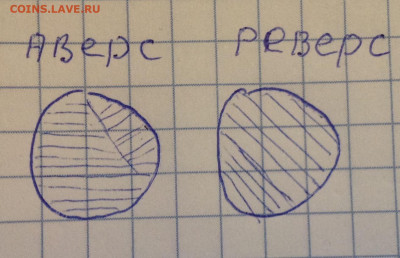 COINS.LAVE.RU
Аверс Реверс